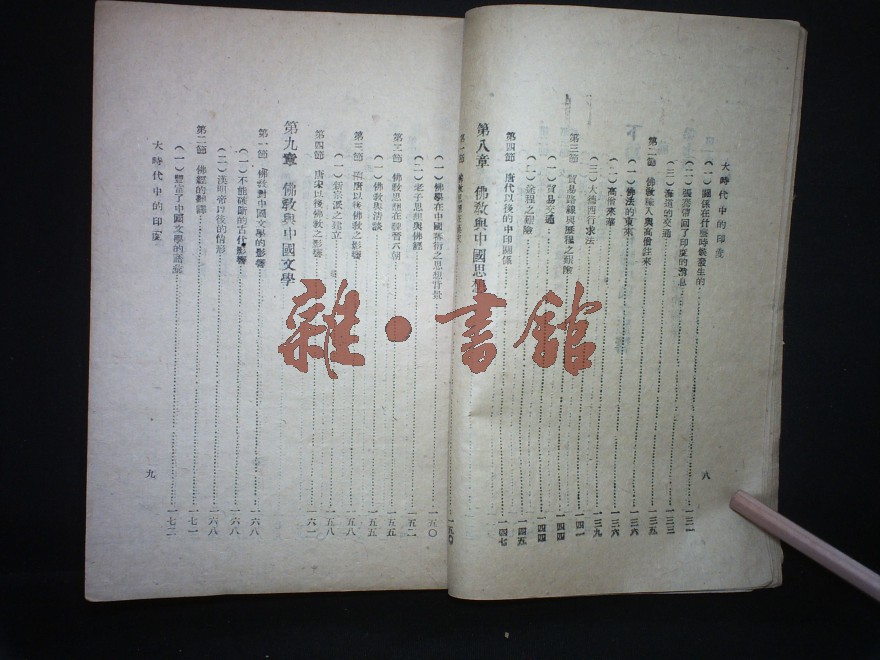 大時代中的印度
(一)關係在什麼時候發生的……一三一
(二)張騫帶回了印度的消息
(三)海道的交通……一三三
第二節 佛教輸入與高僧往來……一三五
(一)佛法的東來……一三六
(二)高僧來華……一三六
(三)大德西行求法……一三九
第三節 貿易路線與歷程之艱險……一四一
(一)貿易交通……一四四
(二)途程之艱險……一四五
第四節 唐代以後的中印關係……一四七
第八章 佛教與中國思想
八
第一節……一五〇
(一)佛學在中國學術之思想背景……一五〇
(二)老子思想與佛經……一五二
第二節 佛教思想在魏晉六朝……一五五
(一)佛教與清談……一五五
第三節 隋唐以後佛教之影響……一五八
(一)新宗派之建立……一五八
第四節 唐宋以後佛教之影響……一六一
第九章 佛教與中國文學
第一節 佛教對中國文學的影響……一六八
(一)不能破斷的古代影響……一六八
(二)漢明帝以後的情形……一六八
第二節 佛經的翻譯……一七一
(一)豐富了中國文學的……一七二
大時代中的印度
九
雜·書館